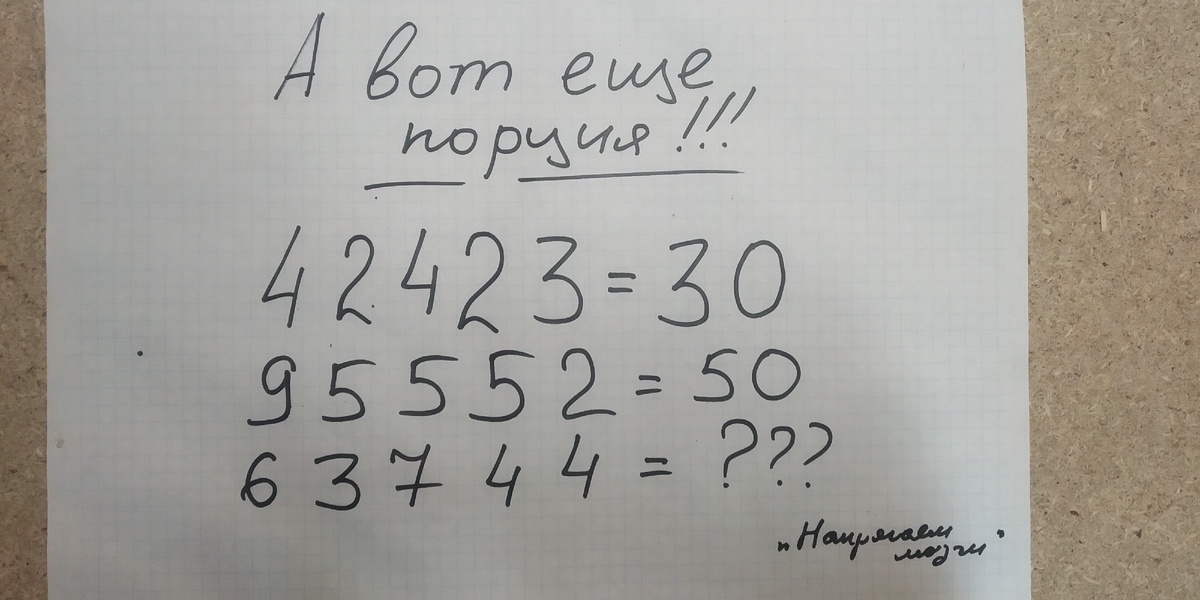 А вот еще
порция!!!
42423=30
95552=50
63744=???
„Напрягаем
мозги"